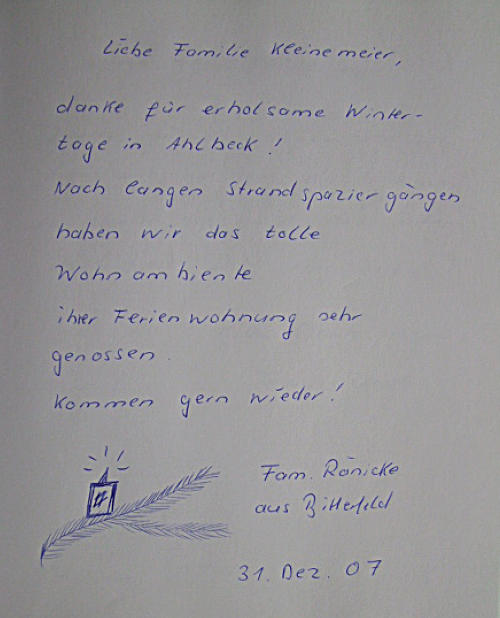 Liebe Familie Kleinemeier,
danke für erholsame Winter-
tage in Ahlbeck!
Nach langen Strandspaziergängen
haben wir das tolle
Wohnambiente
ihrer Ferienwohnung sehr
genossen.
Kommen gern wieder!
Fam. Ränicke
aus Bitterfeld
31. Dez. 07